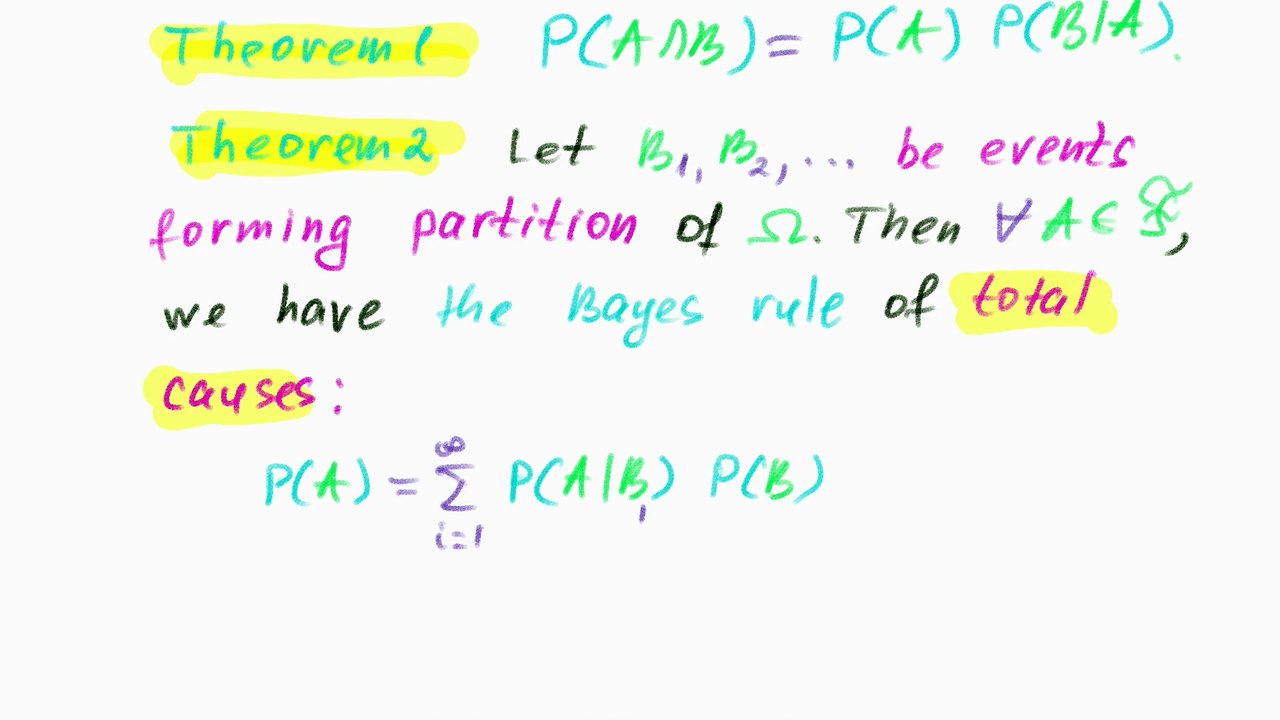 Theorem 1 P(A∩B) = P(A) P(B|A).
Theorem 2 Let B₁, B₂, ... be events
forming partition of Ω. Then ∀ A ∈ ℱ,
we have the Bayes rule of total
causes:
P(A) = ∑_{i=1}^{∞} P(A|B₁) P(B)